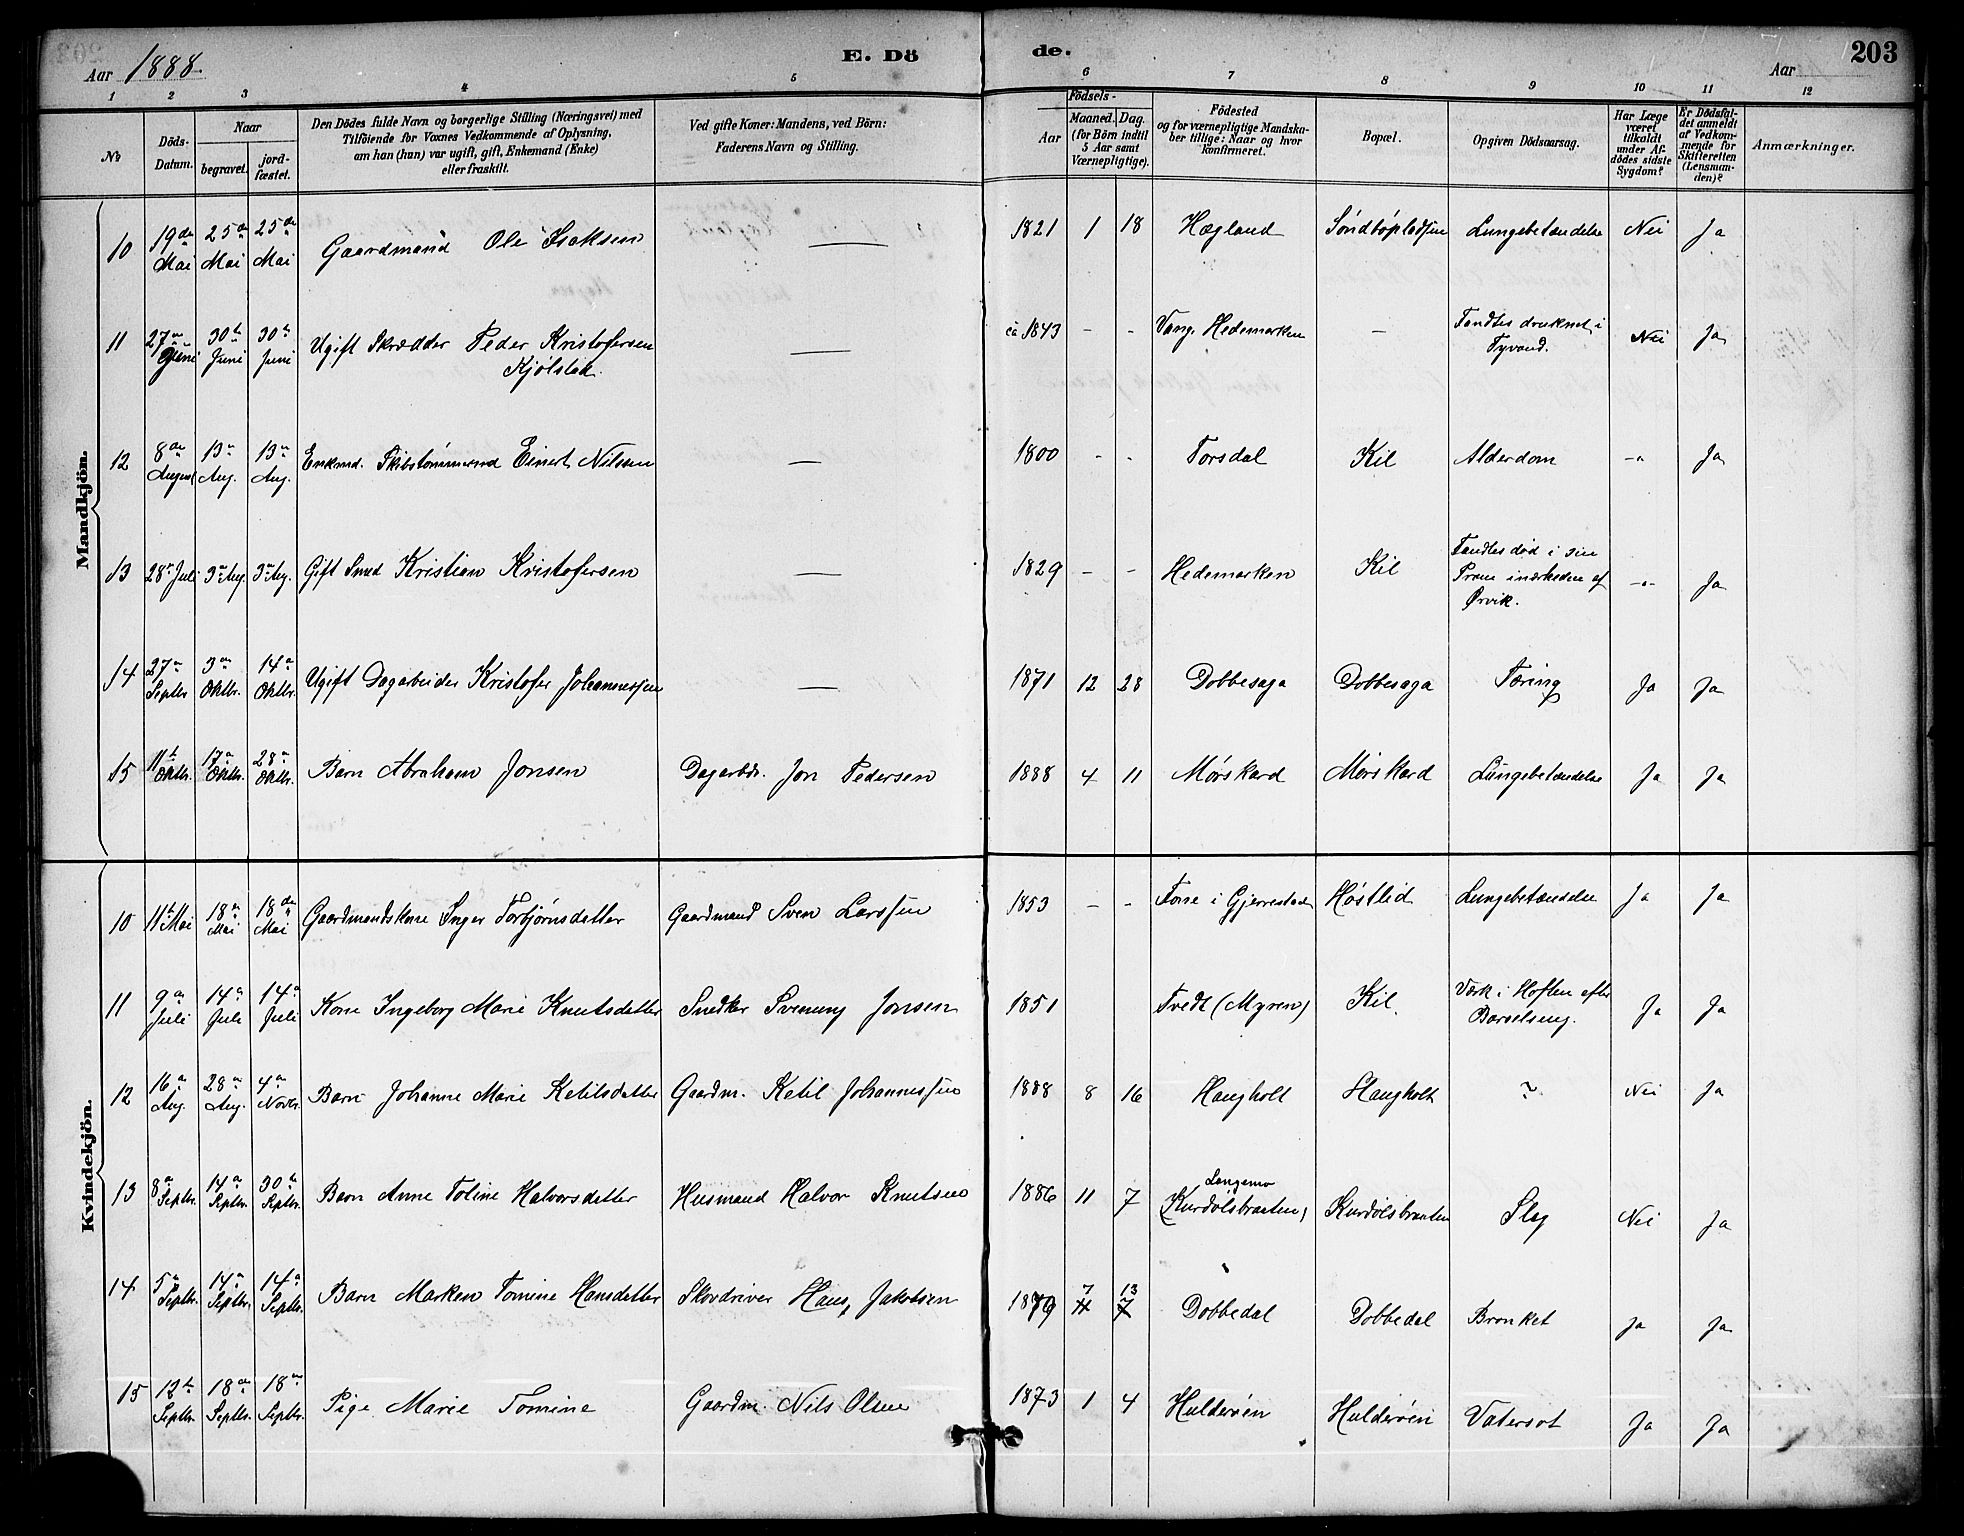 Aar 1888. E. Dö de. Aar 203
1 2 3 4 5 6 7 8 9 10 11 12
№ Döds-Datum. Naar begravet. jordfæstet. Den Dödes fulde Navn og borgerlige Stilling (Næringsvei) med Tilföiende for Voxnes Vedkommende af Oplysning, om han (hun) var ugift, gift, Enkemand (Enke) eller fraskilt. Ved gifte Koner: Mandens, ved Börn: Faderens Navn og Stilling. Födsels- Aar Maaned. Dag. (for Börn indtil 5 Aar samt Værnepligtige). Födested og for værnepligtige Mandskaber tillige: Naar og hvor konfirmeret. Bopæl. Opgiven Dödsaarsag. Har Læge været tilkaldt under Afdödes sidste Sygdom? Er Dödsfaldet anmeldt af Vedkommende for Skifteretten (Lensmanden)? Anmærkninger.
Mandkjön.
10 19de Mai 25de Mai 25de Mai Gaardmand Ole Isaksen — 1821 1 18 Hægland Lungebetændelse Nei Ja
11 27de Juni 30te Juni 30te Juni Ugift Skrædder Peder Kristofersen — ca 1843 - - Vang. Hedemarken — Fandtes druknet i Nei Ja
Kjølstad. Tyvand.
12 8de August 13de Aug. 13de Aug. Enkmd. Skibstømmermd Einert Nilsen — 1800 - - Torsdal Kil Alderdom -"- Ja
13 28de Juli 3de Aug. 3de Aug. Gift Smed Kristian Kristofersen — 1829 - - Hedemarken Kil Fandtes død i sin
Pram i nærheden af -"- Ja
Ørvik.
14 27de Septbr 3die Oktbr. 14de Oktbr. Ugift Dagarbeider Kristofer Johannessen — 1871 12 28 Dobbesaga Dobbesaga Tæring Ja Ja
15 11te Oktbr. 17de Oktbr. 28de Oktbr. Barn Abraham Jonsen Dagarbdr. Jon Pedersen 1888 4 11 Mørskard Mørskard Lungebetændelse Ja Ja
Kvindekjön.
10 11te Mai 18de Mai 18de Mai Gaardmandskone Inger Torbjørnsdatter Gaardmand Sven Larssen 1853 - - Fone i Gjerrestad Høstlid Lungebetændelse Ja Ja
11 9de Juli 14de Juli 14de Juli Kone Ingeborg Marie Knutsdatter Snedker Svenung Jonsen 1851 Tvedt (Myren) Kil. Værk i Hoften efter Ja Ja
Barselseng.
12 16de Aug. 28de Aug. 4de Novbr. Barn Johanne Marie Ketilsdatter Gaardm. Ketil Johannessen 1888 8 16 Haugholt Haugholt ? Nei Ja
13 8de Septbr. 14de Septbr. 30te Septbr. Barn Anne Toline Halvorsdatter Husmand Halvor Knutsen 1886 11 7 Langemo
(Kurdølsbraaten) Kurdølsbraaten Slag Nei Ja
14 5te Septbr. 14de Septbr. 14de Septbr. Barn Maren Tomine Hansdatter Skovdriver Hans Jakobsen 1879 7 13 Dobbedal Dobbedal Bronket Ja Ja
15 12te Septbr. 18de Septbr. 18de Septbr. Pige Marie Tomine Gaardm. Nils Olsen 1873 1 4 Hulderøen Hulderøen Vatersot Ja Ja